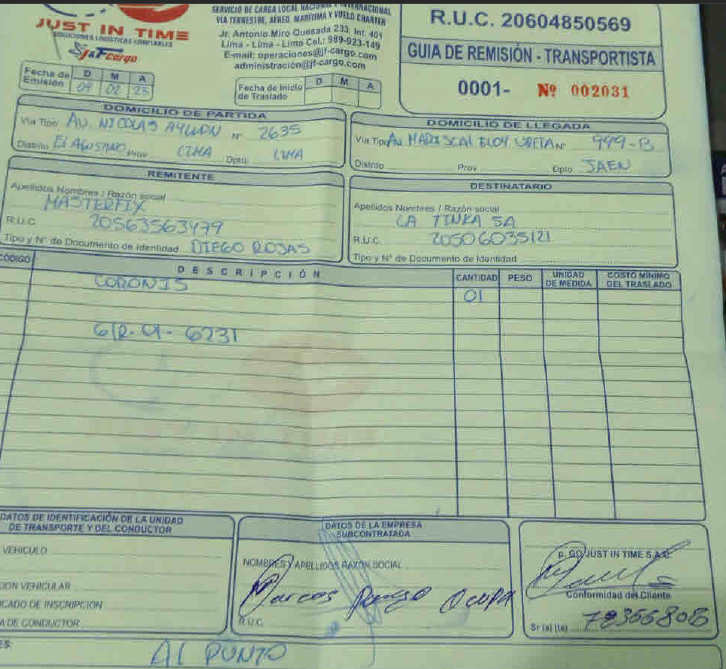 JUST IN TIME
SOLUCIONES LOGISTICAS CONFIABLES
J&F cargo
SERVICIO DE CARGA LOCAL NACIONAL E INTERNACIONAL
VÍA TERRESTRE, AEREO, MARITIMA Y VUELO CHARTER
Jr. Antonio Miro Quesada 233 Int 401
Lima - Lima - Lima Cel.: 989-923-149
E-mail: operaciones@jf-cargo.com
administración@jf-cargo.com
R.U.C. 20604850569
GUIA DE REMISIÓN - TRANSPORTISTA
0001- Nº 002031
Fecha de Emisión D M A
09 02 23
Fecha de Inicio de Traslado D M A
DOMICILIO DE PARTIDA
Via Tipo AV. NICOLAS AYLLON Nº 2635
Distrito El AGUSTINO Prov LIMA Dpto LIMA
DOMICILIO DE LLEGADA
Via Tipo Av MARISCAL ELOY URETA Nº 999-B
Distrito Prov Dpto JAEN
REMITENTE
Apellidos Nombres / Razón social
MASTERFIX
R.U.C 20563563479
Tipo y N° de Documento de Identidad DIEGO ROJAS
DESTINATARIO
Apellidos Nombres / Razón social
LA TINKA SA
R.U.C 20506035121
Tipo y N° de Documento de Identidad
CÓDIGO DESCRIPCIÓN CANTIDAD PESO UNIDAD DE MEDIDA COSTO MINIMO DEL TRASLADO
CORONIS 01
612-01-6231
DATOS DE IDENTIFICACIÓN DE LA UNIDAD
DE TRANSPORTE Y DEL CONDUCTOR
VEHICULO
ION VEHICULAR
ICADO DE INSCRIPCION
A DE CONDUCTOR
DATOS DE LA EMPRESA
SUBCONTRATADA
NOMBRES Y APELLIDOS RAZON SOCIAL
Marcos Ocupa
R.U.C
JUST IN TIME S.A.C
Conformidad del Cliente
Sr (a) (ita)
ES:
Al PUNTO